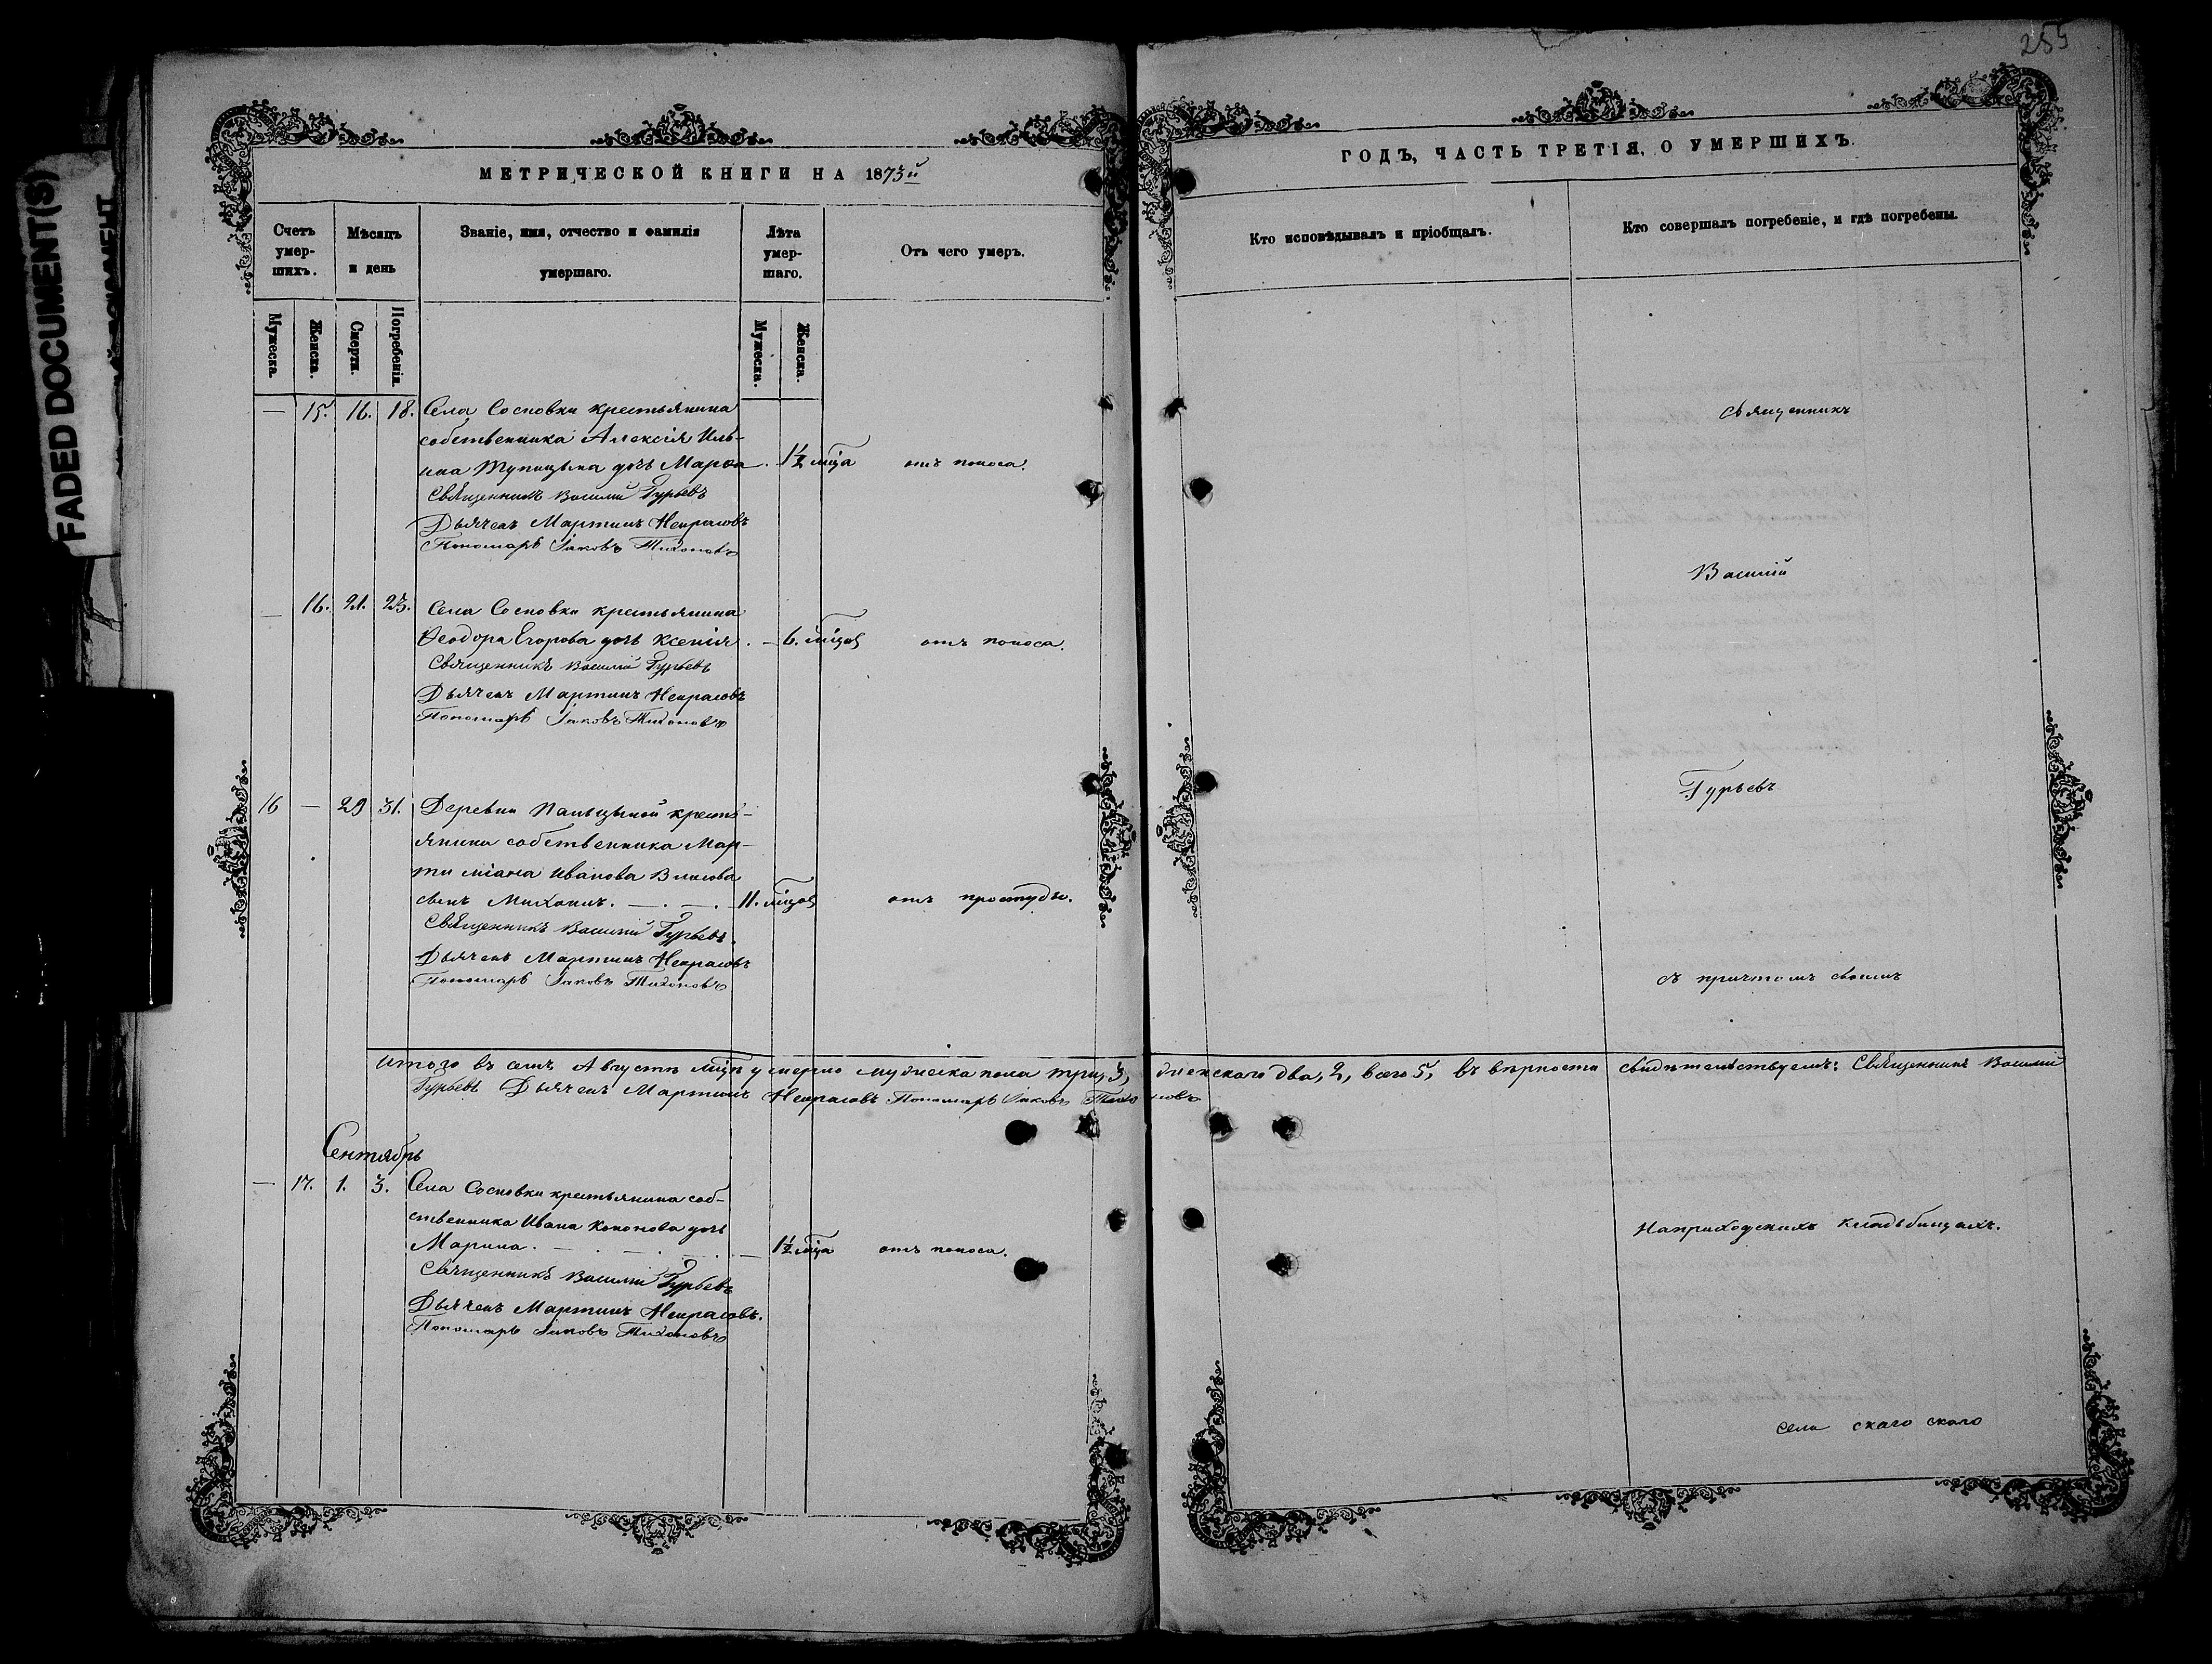 255
FADED DOCUMENT(S)
МЕТРИЧЕСКОЙ КНИГИ НА 1873й
ГОДЪ, ЧАСТЬ ТРЕТІЯ, О УМЕРШИХЪ.
Счетъ умер-
шихъ.
Мѣсяцъ
и день
Званіе, имя, отчество и фамилія
умершаго.
Лѣта
умер-
шаго.
Отъ чего умеръ.
Кто исповѣдывалъ и пріобщалъ.
Кто совершалъ погребеніе, и гдѣ погребены.
Мужеска.
Женска.
Смерти.
Погребенія.
Мужеска.
Женска.
— 15. 16. 18. Села Сосновки крестьянина
собственника Алексія Иль-
ина Тупицына дочь Марѳа. 1½ мца отъ поноса.
Священникъ Василій Гурьевъ
Дьячекъ Мартинъ Некрасовъ
Пономарь Іаковъ Тихоновъ
— 16. 21. 23. Села Сосновки крестьянина
Ѳеодора Егорова дочь Ксенія. — 6. мцов отъ поноса.
Священникъ Василій Гурьевъ
Дьячекъ Мартинъ Некрасовъ
Пономарь Іаковъ Тихоновъ
16 — 29 31. Деревни Пальцыной кресть-
янина собственника Мар-
тиміана Иванова Власова
сынъ Михаилъ. — . — . 11. мцов отъ простуды.
Священникъ Василій Гурьевъ.
Дьячекъ Мартинъ Некрасовъ
Пономарь Іаковъ Тихоновъ
Итого въ семъ Августѣ мцѣ умерло мужеска пола три, 3, женскаго два, 2, всего 5, въ вѣрности свидѣтельствуемъ: Священникъ Василій
Гурьевъ Дьячекъ Мартинъ Некрасовъ Пономарь Іаковъ Тихоновъ
Сентябрь
— 17. 1. 3. Села Сосновки крестьянина соб-
ственника Ивана Кононова дочь
Марина. — . — . — . — 1½ мца отъ поноса.
Священникъ Василій Гурьевъ
Дьячекъ Мартинъ Некрасовъ.
Пономарь Іаковъ Тихоновъ
Священникъ
Василій
Гурьевъ
съ причтомъ своимъ
На приходскихъ кладбищахъ.